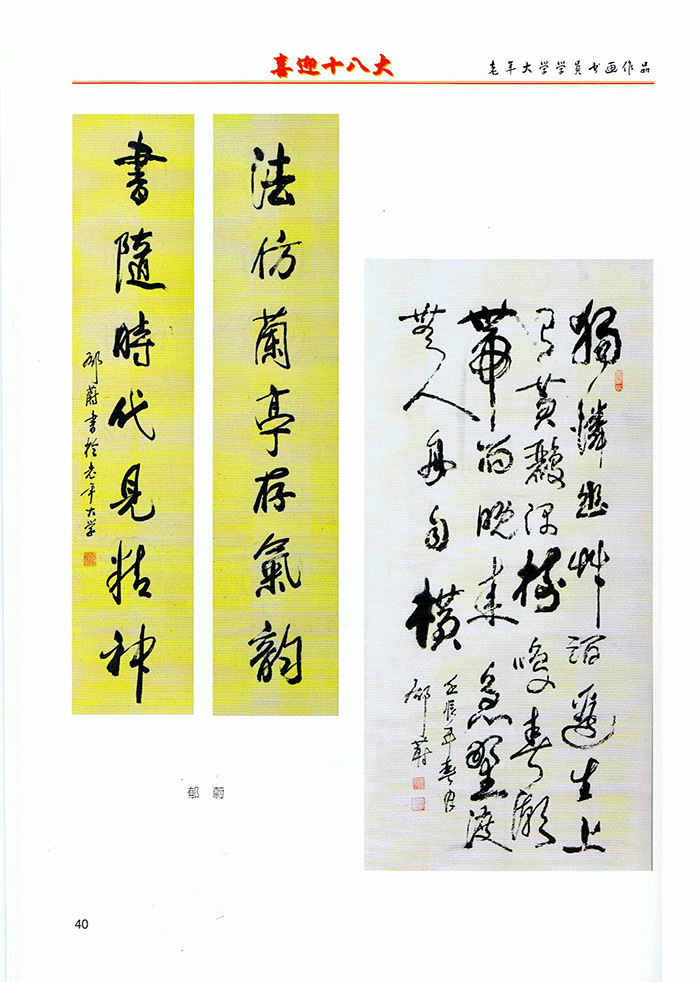 喜迎十八大
老年大学学员书画作品
法仿蘭亭存氣韵
書隨時代見精神
郁蔚書於老年大学
獨憐幽艸澗邊生上
有黃鸝深樹鳴春潮
帶雨晚來急野渡
無人舟自橫
壬辰年春月
郁蔚
郁 蔚
40